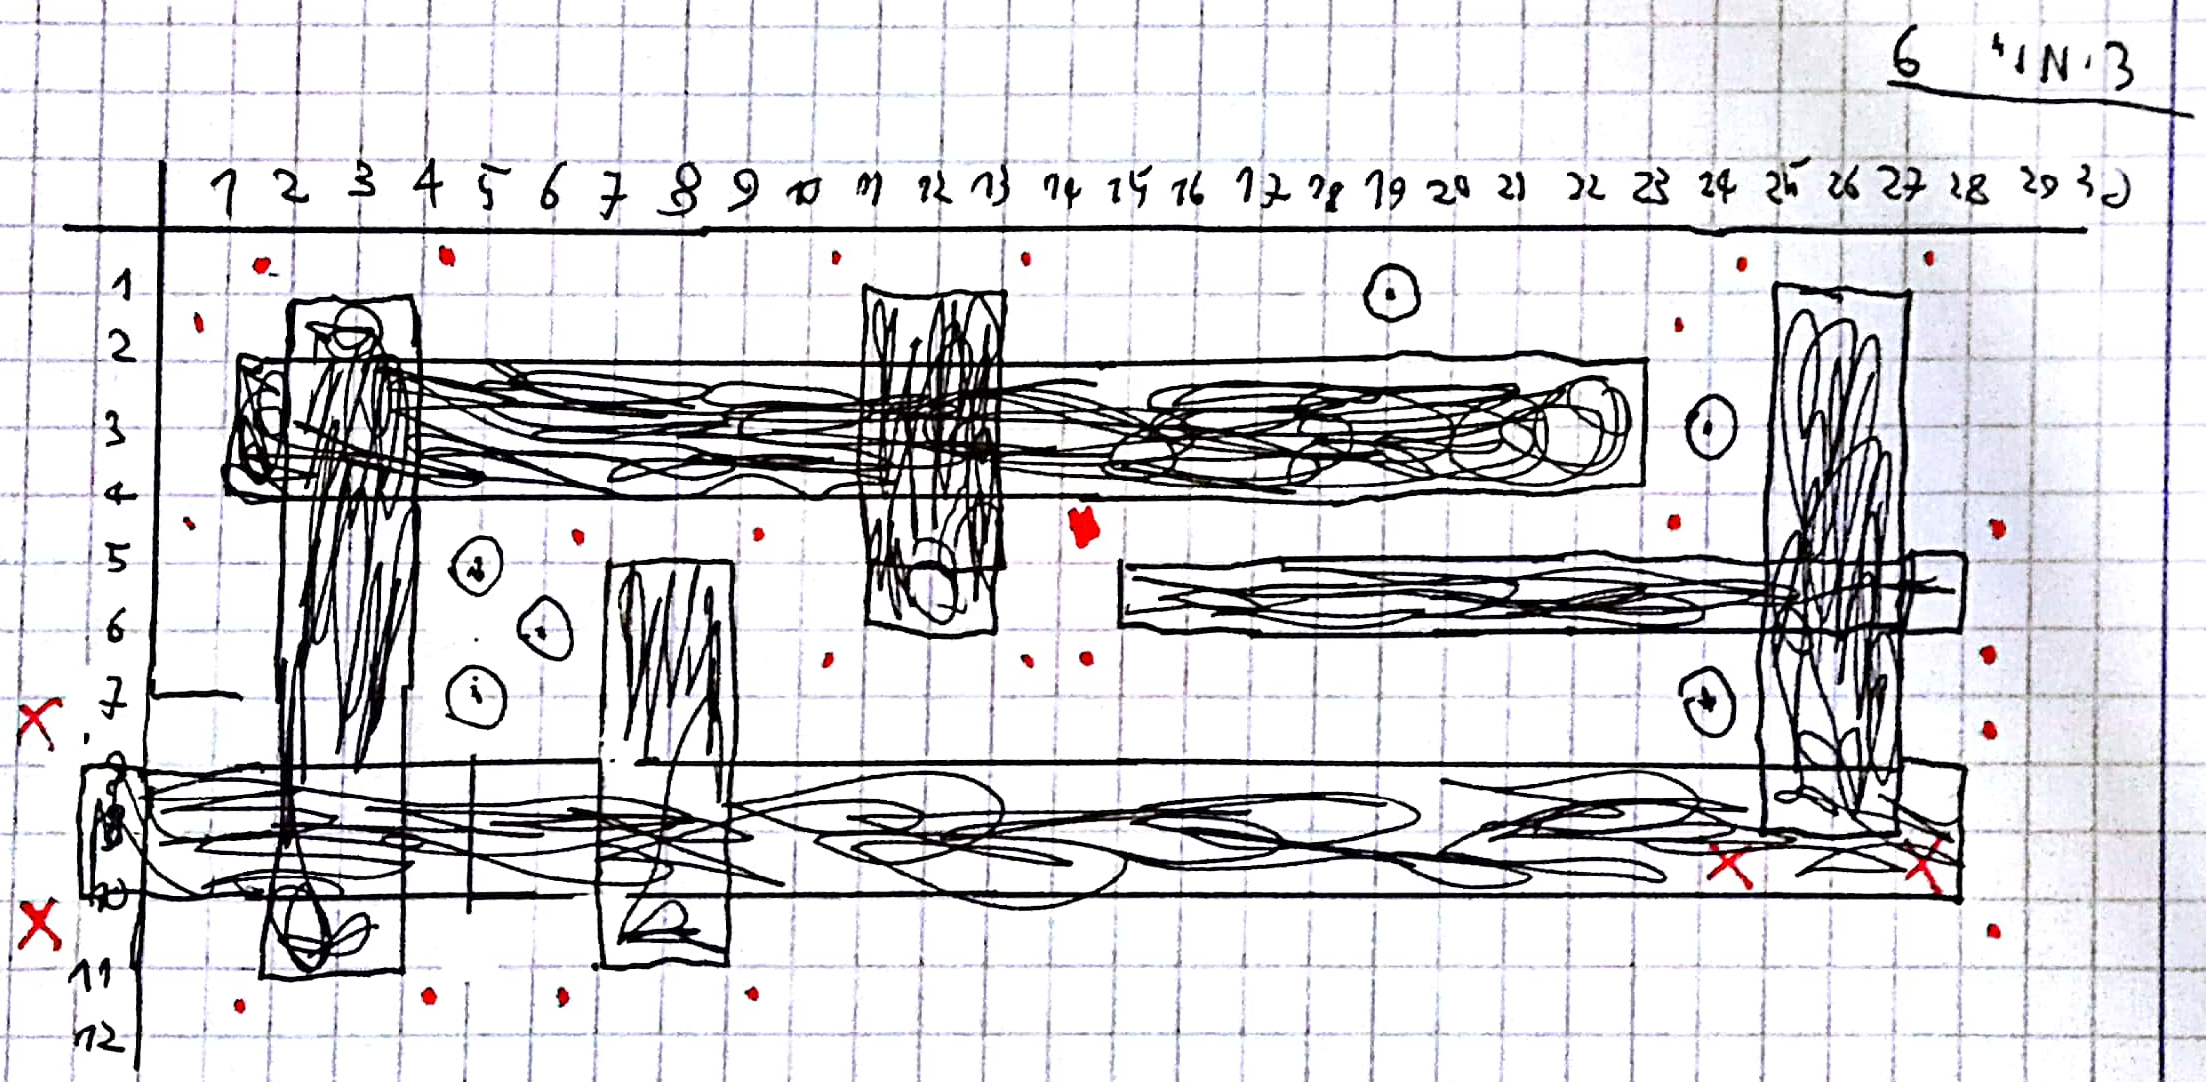 6 "IN·3
1 2 3 4 5 6 7 8 9 10 11 12 13 14 15 16 17 18 19 20 21 22 23 24 25 26 27 28 29 30
1
2
3
4
5
6
7
8
9
10
11
12